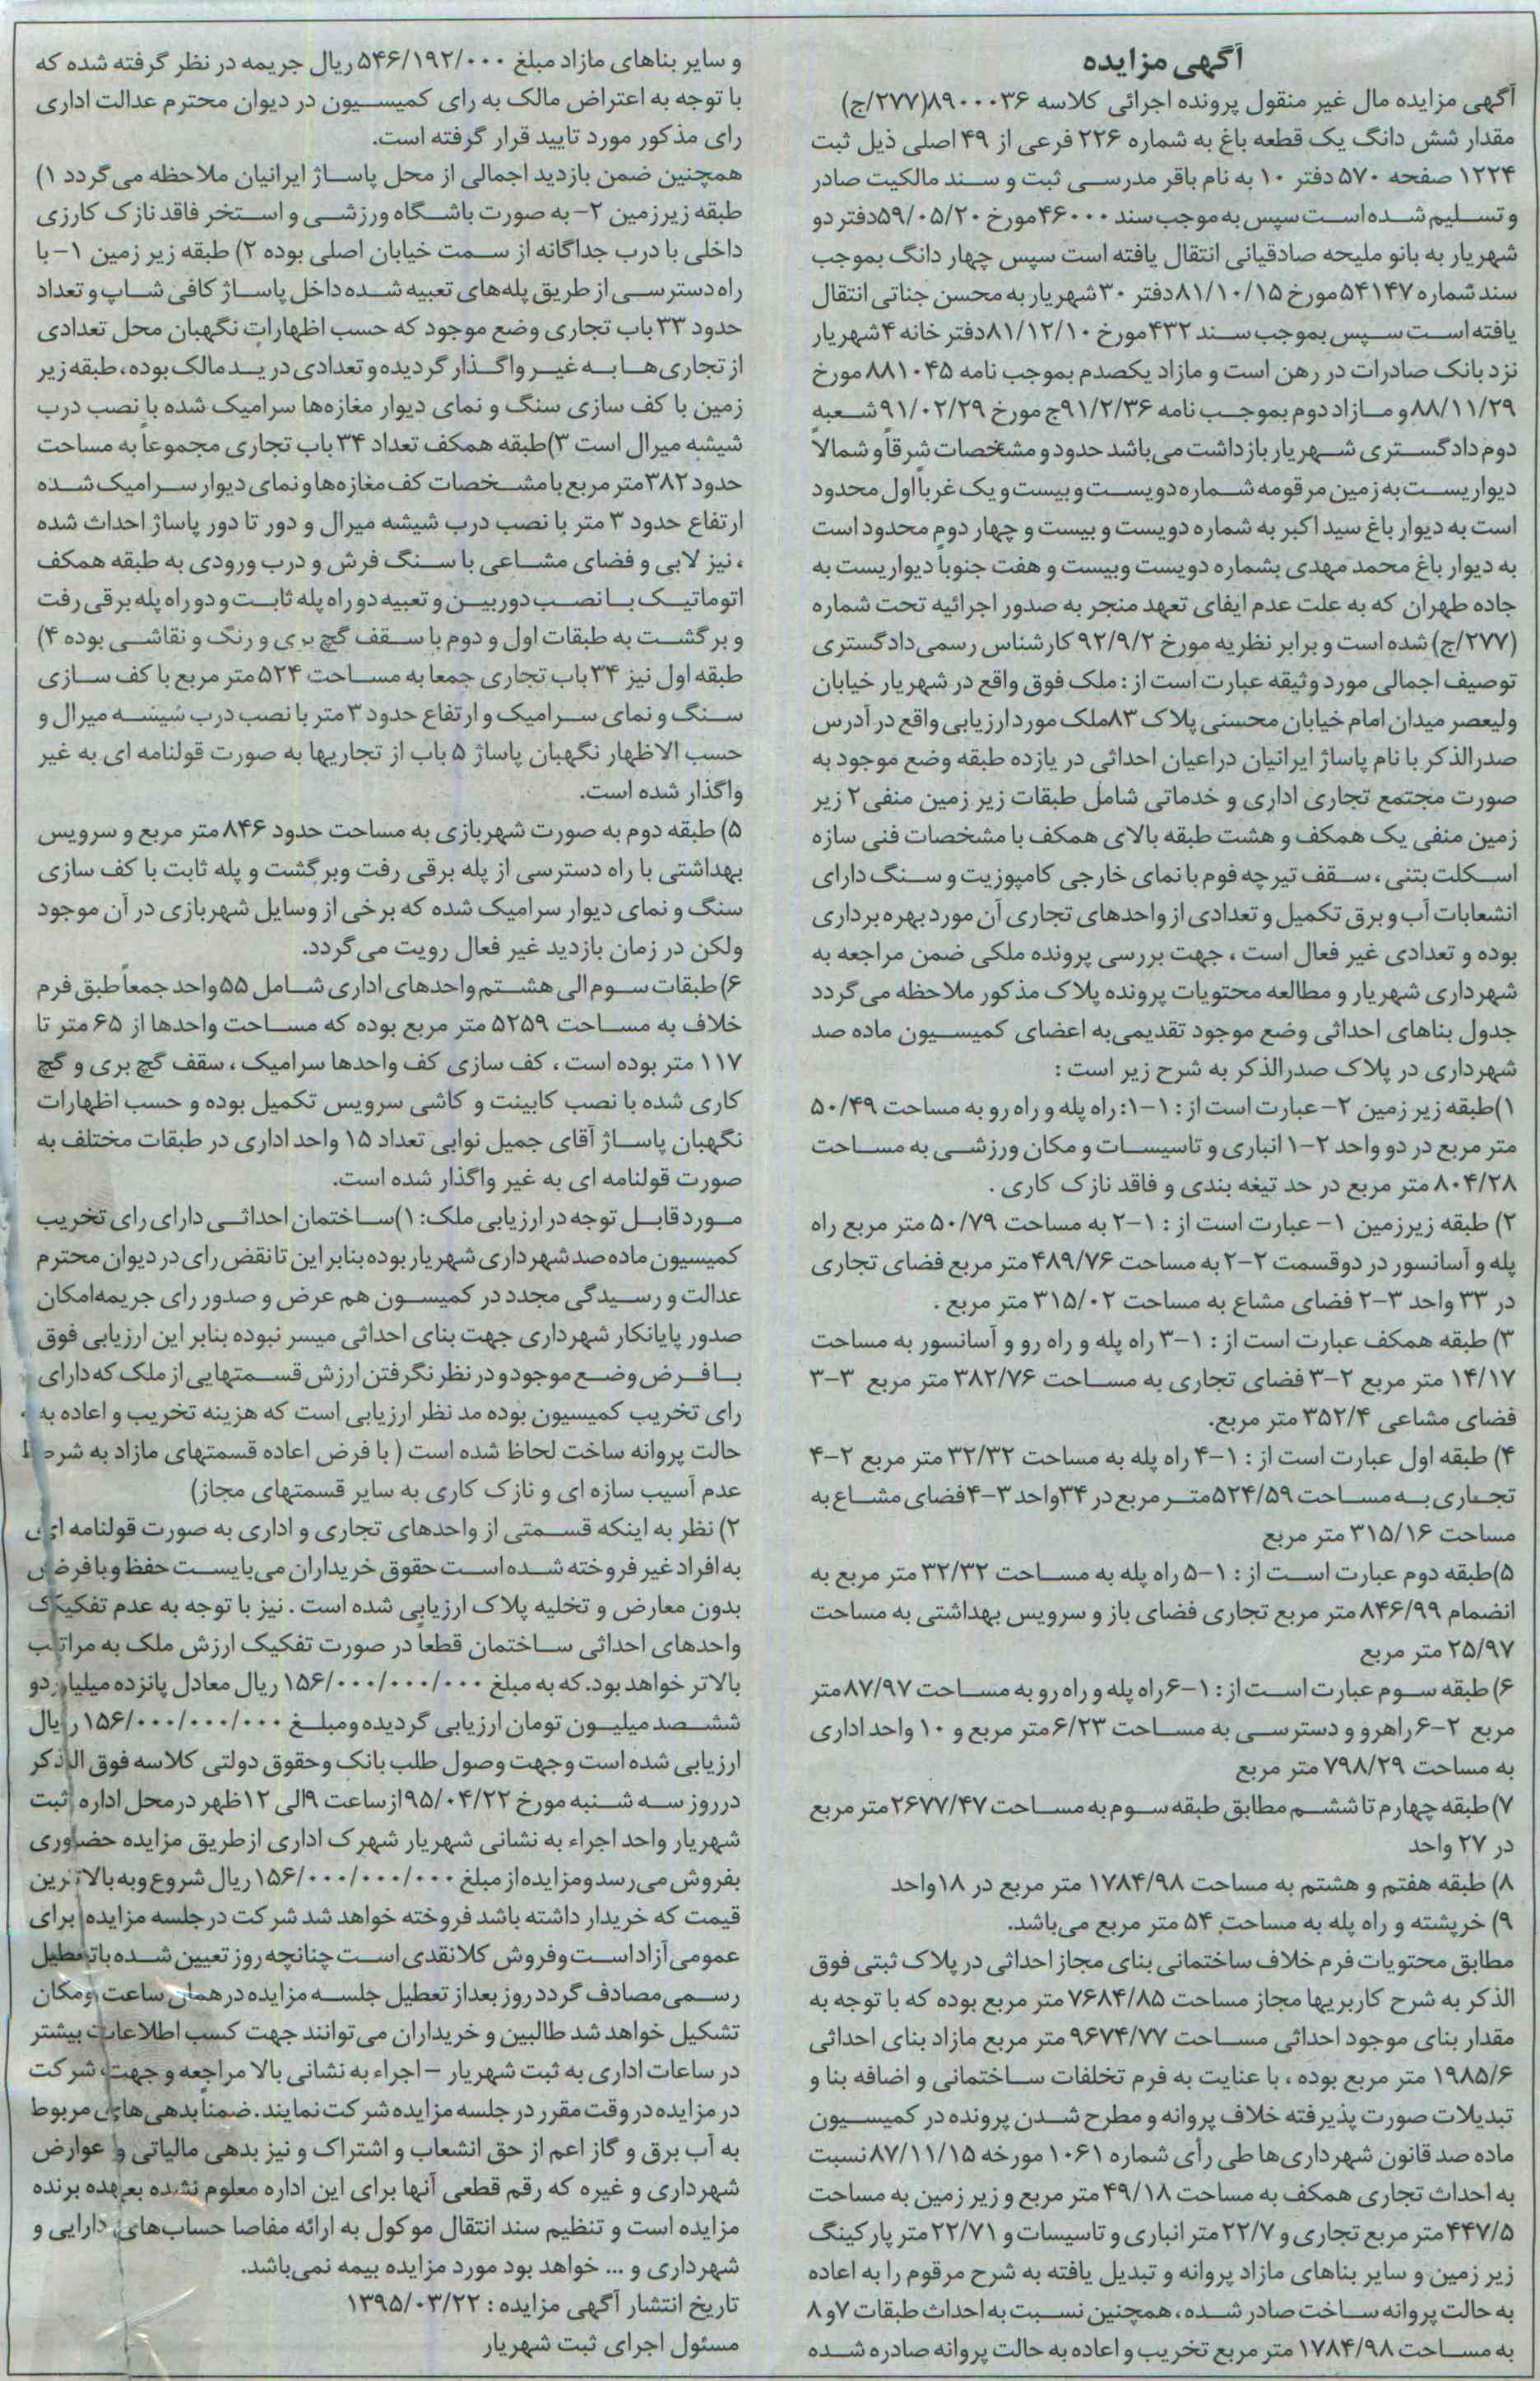 آگهی مزایده
آگهی مزایده مال غیر منقول پرونده اجرائی کلاسه ۸۹۰۰۰۳۶(۲۷۷/ج)
مقدار شش دانگ یک قطعه باغ به شماره ۲۲۶ فرعی از ۴۹ اصلی ذیل ثبت
۱۲۲۴ صفحه ۵۷۰ دفتر ۱۰ به نام باقر مدرسی ثبت و سند مالکیت صادر
و تسلیم شده است سپس به موجب سند ۴۶۰۰۰مورخ ۵۹/۰۵/۲۰دفتر دو
شهریار به بانو ملیحه صادقیانی انتقال یافته است سپس چهار دانگ بموجب
سند شماره ۵۴۱۴۷مورخ ۸۱/۱۰/۱۵دفتر ۳۰شهریار به محسن جناتی انتقال
یافته است سپس بموجب سند ۴۳۲مورخ ۸۱/۱۲/۱۰دفتر خانه ۴شهریار
نزد بانک صادرات در رهن است و مازاد یکصدم بموجب نامه ۸۸۱۰۴۵مورخ
۸۸/۱۱/۲۹و مازاد دوم بموجب نامه ۹۱/۲/۳۶ج مورخ ۹۱/۰۲/۲۹شعبه
دوم دادگستری شهریار بازداشت می‌باشد حدود و مشخصات شرقاً و شمالاً
دیواریست به زمین مرقومه شماره دویست و بیست و یک غرباً اول محدود
است به دیوار باغ سید اکبر به شماره دویست و بیست و چهار دوم محدود است
به دیوار باغ محمد مهدی بشماره دویست وبیست و هفت جنوباً دیواریست به
جاده طهران که به علت عدم ایفای تعهد منجر به صدور اجرائیه تحت شماره
(۲۷۷/ج) شده است و برابر نظریه مورخ ۹۲/۹/۲ کارشناس رسمی دادگستری
توصیف اجمالی مورد وثیقه عبارت است از : ملک فوق واقع در شهریار خیابان
ولیعصر میدان امام خیابان محسنی پلاک ۸۳ملک مورد ارزیابی واقع در آدرس
صدرالذکر با نام پاساژ ایرانیان دراعیان احداثی در یازده طبقه وضع موجود به
صورت مجتمع تجاری اداری و خدماتی شامل طبقات زیر زمین منفی۲ زیر
زمین منفی یک همکف و هشت طبقه بالای همکف با مشخصات فنی سازه
اسکلت بتنی ، سقف تیرچه فوم با نمای خارجی کامپوزیت و سنگ دارای
انشعابات آب و برق تکمیل و تعدادی از واحدهای تجاری آن مورد بهره برداری
بوده و تعدادی غیر فعال است ، جهت بررسی پرونده ملکی ضمن مراجعه به
شهرداری شهریار و مطالعه محتویات پرونده پلاک مذکور ملاحظه می گردد
جدول بناهای احداثی وضع موجود تقدیمی‌به اعضای کمیسیون ماده صد
شهرداری در پلاک صدرالذکر به شرح زیر است :
۱)طبقه زیر زمین ۲- عبارت است از : ۱-۱: راه پله و راه رو به مساحت ۵۰/۴۹
متر مربع در دو واحد ۲-۱ انباری و تاسیسات و مکان ورزشی به مساحت
۸۰۴/۲۸ متر مربع در حد تیغه بندی و فاقد نازک کاری .
۲) طبقه زیرزمین ۱- عبارت است از : ۱-۲ به مساحت ۵۰/۷۹ متر مربع راه
پله و آسانسور در دوقسمت ۲-۲ به مساحت ۴۸۹/۷۶ متر مربع فضای تجاری
در ۳۳ واحد ۳-۲ فضای مشاع به مساحت ۳۱۵/۰۲ متر مربع .
۳) طبقه همکف عبارت است از : ۱-۳ راه پله و راه رو و آسانسور به مساحت
۱۴/۱۷ متر مربع ۲-۳ فضای تجاری به مساحت ۳۸۲/۷۶ متر مربع ۳-۳
فضای مشاعی ۳۵۲/۴ متر مربع.
۴) طبقه اول عبارت است از : ۱-۴ راه پله به مساحت ۳۲/۳۲ متر مربع ۲-۴
تجاری به مساحت ۵۲۴/۵۹متر مربع در ۳۴واحد ۳-۴فضای مشاع به
مساحت ۳۱۵/۱۶ متر مربع
۵)طبقه دوم عبارت است از : ۱-۵ راه پله به مساحت ۳۲/۳۲ متر مربع به
انضمام ۸۴۶/۹۹ متر مربع تجاری فضای باز و سرویس بهداشتی به مساحت
۲۵/۹۷ متر مربع
۶) طبقه سوم عبارت است از : ۱-۶ راه پله و راه رو به مساحت ۸۷/۹۷متر
مربع ۲-۶ راهرو و دسترسی به مساحت ۶/۲۳متر مربع و ۱۰ واحد اداری
به مساحت ۷۹۸/۲۹ متر مربع
۷)طبقه چهارم تا ششم مطابق طبقه سوم به مساحت ۲۶۷۷/۴۷متر مربع
در ۲۷ واحد
۸) طبقه هفتم و هشتم به مساحت ۱۷۸۴/۹۸ متر مربع در ۱۸واحد
۹) خرپشته و راه پله به مساحت ۵۴ متر مربع می‌باشد.
مطابق محتویات فرم خلاف ساختمانی بنای مجاز احداثی در پلاک ثبتی فوق
الذکر به شرح کاربریها مجاز مساحت ۷۶۸۴/۸۵ متر مربع بوده که با توجه به
مقدار بنای موجود احداثی مساحت ۹۶۷۴/۷۷ متر مربع مازاد بنای احداثی
۱۹۸۵/۶ متر مربع بوده ، با عنایت به فرم تخلفات ساختمانی و اضافه بنا و
تبدیلات صورت پذیرفته خلاف پروانه و مطرح شدن پرونده در کمیسیون
ماده صد قانون شهرداری‌ها طی رأی شماره ۱۰۶۱ مورخه ۸۷/۱۱/۱۵نسبت
به احداث تجاری همکف به مساحت ۴۹/۱۸ متر مربع و زیر زمین به مساحت
۴۴۷/۵ متر مربع تجاری و ۲۲/۷ متر انباری و تاسیسات و ۲۲/۷۱ متر پارکینگ
زیر زمین و سایر بناهای مازاد پروانه و تبدیل یافته به شرح مرقوم را به اعاده
به حالت پروانه ساخت صادر شده ، همچنین نسبت به احداث طبقات ۷و۸
به مساحت ۱۷۸۴/۹۸ متر مربع تخریب و اعاده به حالت پروانه صادره شده
و سایر بناهای مازاد مبلغ ۵۴۶/۱۹۲/۰۰۰ ریال جریمه در نظر گرفته شده که
با توجه به اعتراض مالک به رای کمیسیون در دیوان محترم عدالت اداری
رای مذکور مورد تایید قرار گرفته است.
همچنین ضمن بازدید اجمالی از محل پاساژ ایرانیان ملاحظه می گردد ۱)
طبقه زیرزمین ۲- به صورت باشگاه ورزشی و استخر فاقد نازک کارزی
داخلی با درب جداگانه از سمت خیابان اصلی بوده ۲) طبقه زیر زمین ۱- با
راه دسترسی از طریق پله‌های تعبیه شده داخل پاساژ کافی شاپ و تعداد
حدود ۳۳ باب تجاری وضع موجود که حسب اظهارات نگهبان محل تعدادی
از تجاری‌ها به غیر واگذار گردیده و تعدادی در ید مالک بوده، طبقه زیر
زمین با کف سازی سنگ و نمای دیوار مغازه‌ها سرامیک شده با نصب درب
شیشه میرال است ۳)طبقه همکف تعداد ۳۴ باب تجاری مجموعاً به مساحت
حدود ۳۸۲متر مربع با مشخصات کف مغازه‌ها و نمای دیوار سرامیک شده
ارتفاع حدود ۳ متر با نصب درب شیشه میرال و دور تا دور پاساژ احداث شده
، نیز لابی و فضای مشاعی با سنگ فرش و درب ورودی به طبقه همکف
اتوماتیک با نصب دوربین و تعبیه دو راه پله ثابت و دو راه پله برقی رفت
و برگشت به طبقات اول و دوم با سقف گچ بری و رنگ و نقاشی بوده ۴)
طبقه اول نیز ۳۴ باب تجاری جمعا به مساحت ۵۲۴ متر مربع با کف سازی
سنگ و نمای سرامیک و ارتفاع حدود ۳ متر با نصب درب شیشه میرال و
حسب الاظهار نگهبان پاساژ ۵ باب از تجاریها به صورت قولنامه ای به غیر
واگذار شده است.
۵) طبقه دوم به صورت شهربازی به مساحت حدود ۸۴۶ متر مربع و سرویس
بهداشتی با راه دسترسی از پله برقی رفت وبرگشت و پله ثابت با کف سازی
سنگ و نمای دیوار سرامیک شده که برخی از وسایل شهربازی در آن موجود
ولکن در زمان بازدید غیر فعال رویت می گردد.
۶) طبقات سوم الی هشتم واحدهای اداری شامل ۵۵ واحد جمعاً طبق فرم
خلاف به مساحت ۵۲۵۹ متر مربع بوده که مساحت واحدها از ۶۵ متر تا
۱۱۷ متر بوده است ، کف سازی کف واحدها سرامیک ، سقف گچ بری و گچ
کاری شده با نصب کابینت و کاشی سرویس تکمیل بوده و حسب اظهارات
نگهبان پاساژ آقای جمیل نوابی تعداد ۱۵ واحد اداری در طبقات مختلف به
صورت قولنامه ای به غیر واگذار شده است.
مورد قابل توجه در ارزیابی ملک: ۱)ساختمان احداثی دارای رای تخریب
کمیسیون ماده صد شهرداری شهریار بوده بنابراین تا نقض رای در دیوان محترم
عدالت و رسیدگی مجدد در کمیسون هم عرض و صدور رای جریمه‌امکان
صدور پایانکار شهرداری جهت بنای احداثی میسر نبوده بنابر این ارزیابی فوق
با فرض وضع موجود و در نظر نگرفتن ارزش قسمتهایی از ملک که دارای
رای تخریب کمیسیون بوده مد نظر ارزیابی است که هزینه تخریب و اعاده به
حالت پروانه ساخت لحاظ شده است ( با فرض اعاده قسمتهای مازاد به شرط
عدم آسیب سازه ای و نازک کاری به سایر قسمتهای مجاز)
۲) نظر به اینکه قسمتی از واحدهای تجاری و اداری به صورت قولنامه ای
به افراد غیر فروخته شده است حقوق خریداران می‌بایست حفظ و با فرض
بدون معارض و تخلیه پلاک ارزیابی شده است . نیز با توجه به عدم تفکیک
واحدهای احداثی ساختمان قطعاً در صورت تفکیک ارزش ملک به مراتب
بالاتر خواهد بود. که به مبلغ ۱۵۶/۰۰۰/۰۰۰/۰۰۰ ریال معادل پانزده میلیارد و
ششصد میلیون تومان ارزیابی گردیده ومبلغ ۱۵۶/۰۰۰/۰۰۰/۰۰۰ ریال
ارزیابی شده است و جهت وصول طلب بانک وحقوق دولتی کلاسه فوق الذکر
درروز سه شنبه مورخ ۹۵/۰۴/۲۲از ساعت ۹الی ۱۲ظهر درمحل اداره ثبت
شهریار واحد اجراء به نشانی شهریار شهرک اداری ازطریق مزایده حضوری
بفروش می‌رسد ومزایده از مبلغ ۱۵۶/۰۰۰/۰۰۰/۰۰۰ ریال شروع وبه بالاترین
قیمت که خریدار داشته باشد فروخته خواهد شد شرکت درجلسه مزایده برای
عمومی آزاداست وفروش کلا نقدی است چنانچه روز تعیین شده باتعطیل
رسمی مصادف گردد روز بعداز تعطیل جلسه مزایده در همان ساعت ومکان
تشکیل خواهد شد طالبین و خریداران می‌توانند جهت کسب اطلاعات بیشتر
در ساعات اداری به ثبت شهریار – اجراء به نشانی بالا مراجعه و جهت شرکت
در مزایده در وقت مقرر در جلسه مزایده شرکت نمایند. ضمناً بدهی های مربوط
به آب برق و گاز اعم از حق انشعاب و اشتراک و نیز بدهی مالیاتی و عوارض
شهرداری و غیره که رقم قطعی آنها برای این اداره معلوم نشده بعهده برنده
مزایده است و تنظیم سند انتقال موکول به ارائه مفاصا حساب‌های دارایی و
شهرداری و ... خواهد بود مورد مزایده بیمه نمی‌باشد.
تاریخ انتشار آگهی مزایده : ۱۳۹۵/۰۳/۲۲
مسئول اجرای ثبت شهریار